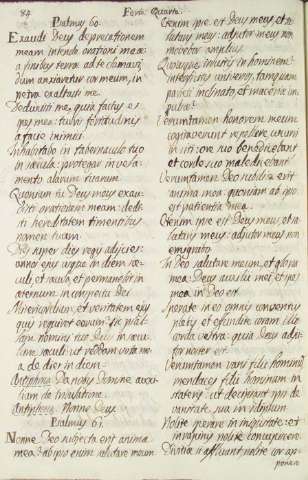 84
Feria Quarta:
Psalmus 60.
Exaudi Deus deprecationem
meam intende orationi meæ:
a finibus terræ ad te clamavi
dum anxiaretur cor meum, in
petra exaltasti me.
Deduxisti me, quia factus es
spes mea: turris fortitudinis
a facie inimici.
Inhabitabo in tabernaculo tuo
in sæcula: protegar in vela-
mento alarum tuarum.
Quoniam tu Deus meus exau-
disti orationem meam: dedi-
sti hereditatem timentibus
nomen tuum.
Dies super dies regis adjicies:
annos ejus usque in diem sæ-
culi, et sæculi,
Permanet in
æternum in conspectu Dei
Misericordiam, et veritatem ejus
quis requiret eorum: sic psal-
mum nomini tuo in sæcu-
lum sæculi: ut reddam vota me-
a de die in diem.
Antiphona Da nobis Domine auxi-
lium de tribulatione
Antiphona Nonne Deus
Psalmus 61.
Nonne Deo subjecta erit anima
mea: ab ipso enim salutare meum.
meus, et sa-
lutaris meus: adjutor meus non
movebor amplius.
in hominem:
universi, tanquam
parieti inclinato, et maceriæ
Verumtamen honorem meum
cogitaverunt repellere cucurri
in siti: ore suo benedicebant
et corde suo maledicebant
Verumtamen Deo esto
anima mea: quoniam ab ipso
est patientia mea.
Deus meus, et sa-
lutaris meus: adjutor meus non
emigrabo
In Deo salutare meum, et gloria
mea: Deus auxilii mei, et spes
mea in Deo est.
Sperate in eo omnis congrega-
et effundite coram illo
corda vestra: Deus adju-
tor noster est
Verumtamen vani filii hominum
mendaces filii hominum in
stateris: ut decipiant ipsi de
vanitate in idipsum
Nolite sperare in iniquitate: et
rapinas nolite concupiscere
Divitiæ si affluant nolite cor ap-
ponere